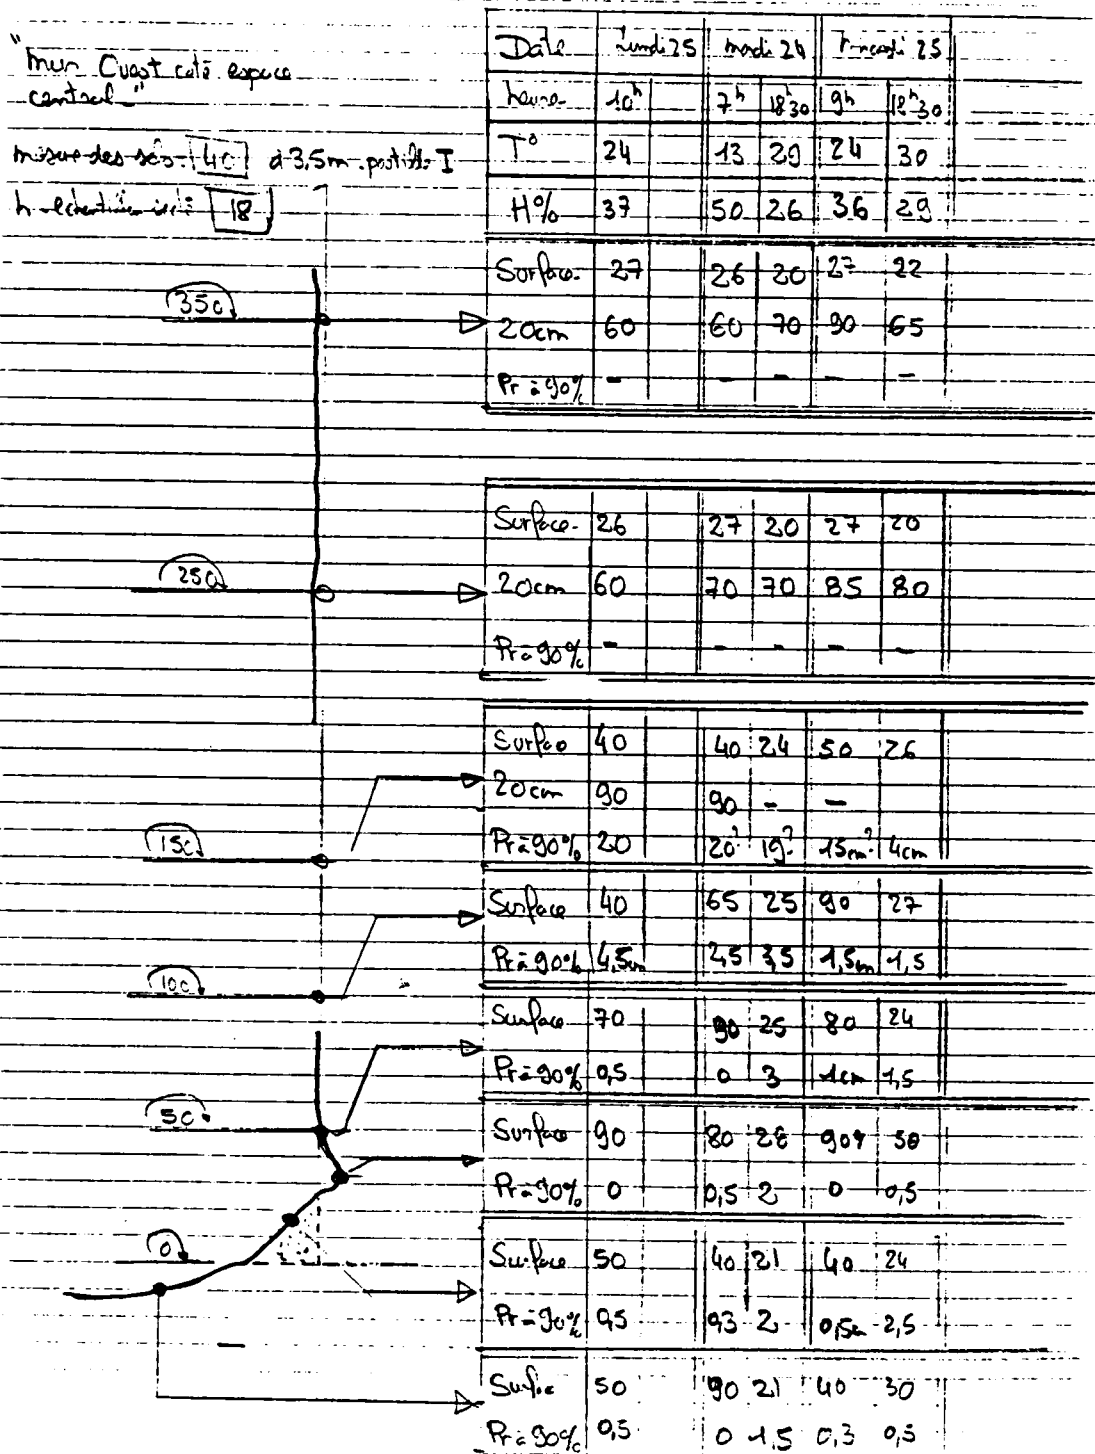 "mur Ouest coté espace
central"
mesure des sels 40 à 3,5m
18
Date lundi 23 mardi 24 mercredi 25
heure 10h 7h 18h30 9h 18h30
T° 24 13 29 24 30
H% 37 50 26 36 29
350
Surface 27 26 20 27 22
20cm 60 60 70 90 65
Pr à 90% - - - - -
250
Surface 26 27 20 27 20
20cm 60 70 70 85 80
Pr à 90% - - - - -
150
Surface 40 40 24 50 26
20cm 90 90 - -
Pr à 90% 20 20? 19? 15cm? 4cm
100
Surface 40 65 25 90 27
Pr à 90% 4,5cm 2,5 3,5 1,5cm 1,5
50
Surface 70 90 25 80 24
Pr à 90% 0,5 0 3 1cm 1,5
Surface 90 80 28 90
Pr à 90% 0 0,5 2 0 0,5
0
Surface 50 40 21 40 24
Pr à 90% 0,5 0,3 2 0,5cm 2,5
Surface 50 90 21 40 30
Pr à 90% 0,5 0 1,5 0,3 0,5